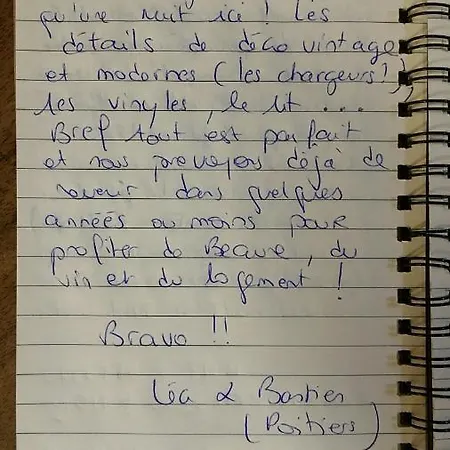 qu'une nuit ici ! Les
détails de déco vintage
et modernes (les chargeurs !),
les vinyles, le lit ...
Bref tout est parfait
et nous prevoyons déjà de
revenir dans quelques
années au moins pour
profiter de Beaune, du
vin et du logement !
Bravo !!
Léa & Bastien
(Poitiers)